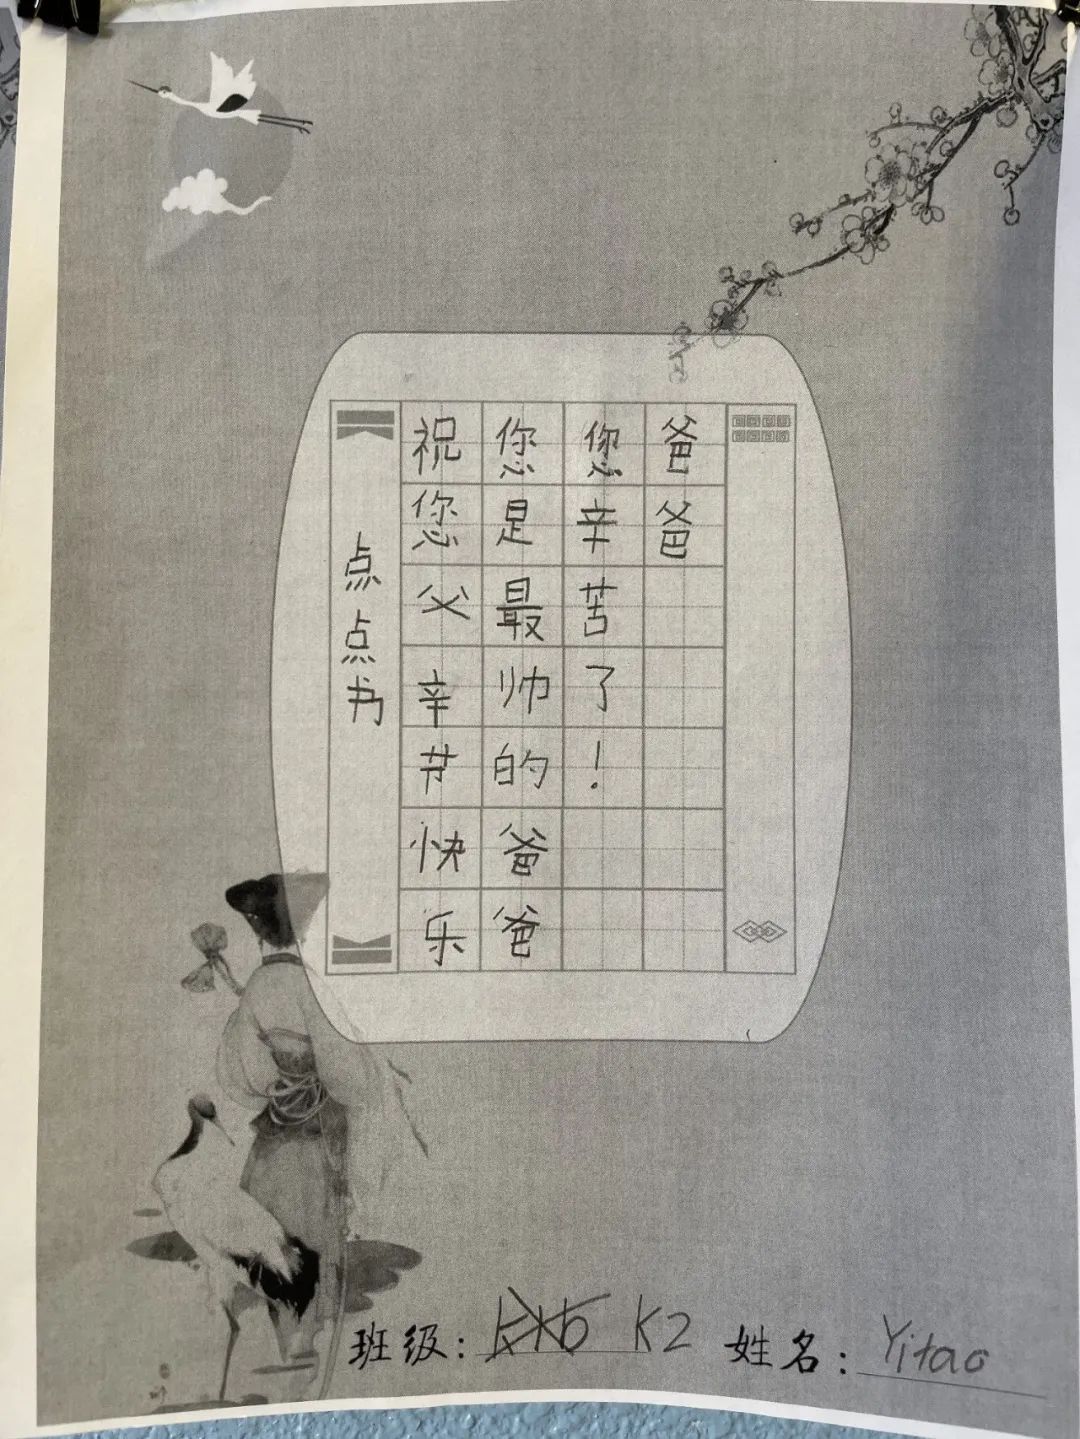 爸爸
您辛苦了！
您是最帅的爸爸
祝您父辛节快乐
点点书
班级：K2
姓名：Yitao